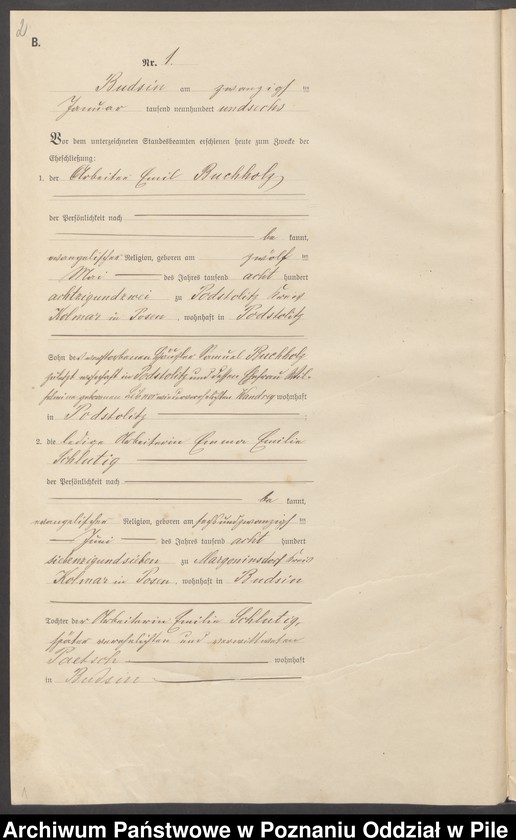 2
B.
Nr. 1.
Budsin am zwanzigsten
Januar tausend neunhundert und sechs
Vor dem unterzeichneten Standesbeamten erschienen heute zum Zwecke der
Eheschließung:
1. der Arbeiter Emil Buchholz
der Persönlichkeit nach
be kannt,
evangelischer Religion, geboren am zwölften
Mai des Jahres tausend acht hundert
achtzigundzwei zu Podstolitz Kreis
Kolmar in Posen, wohnhaft in Podstolitz
Sohn des verstorbenen Häusler Samuel Buchholz
zuletzt wohnhaft in Podstolitz und dessen Ehefrau
geborenen wiederverehelichten wohnhaft
in Podstolitz ;
2. die ledige Arbeiterin Emma Emilie
Schlutig
der Persönlichkeit nach
be kannt,
evangelischer Religion, geboren am sechsundzwanzigsten
Juni des Jahres tausend acht hundert
siebenzigundsieben zu Margoninsdorf Kreis
Kolmar in Posen, wohnhaft in Budsin
Tochter der Arbeiterin Emilie Schlutig,
später verehelichten und verwittweten
Paetsch wohnhaft
in Budsin
Archiwum Państwowe w Poznaniu Oddział w Pile